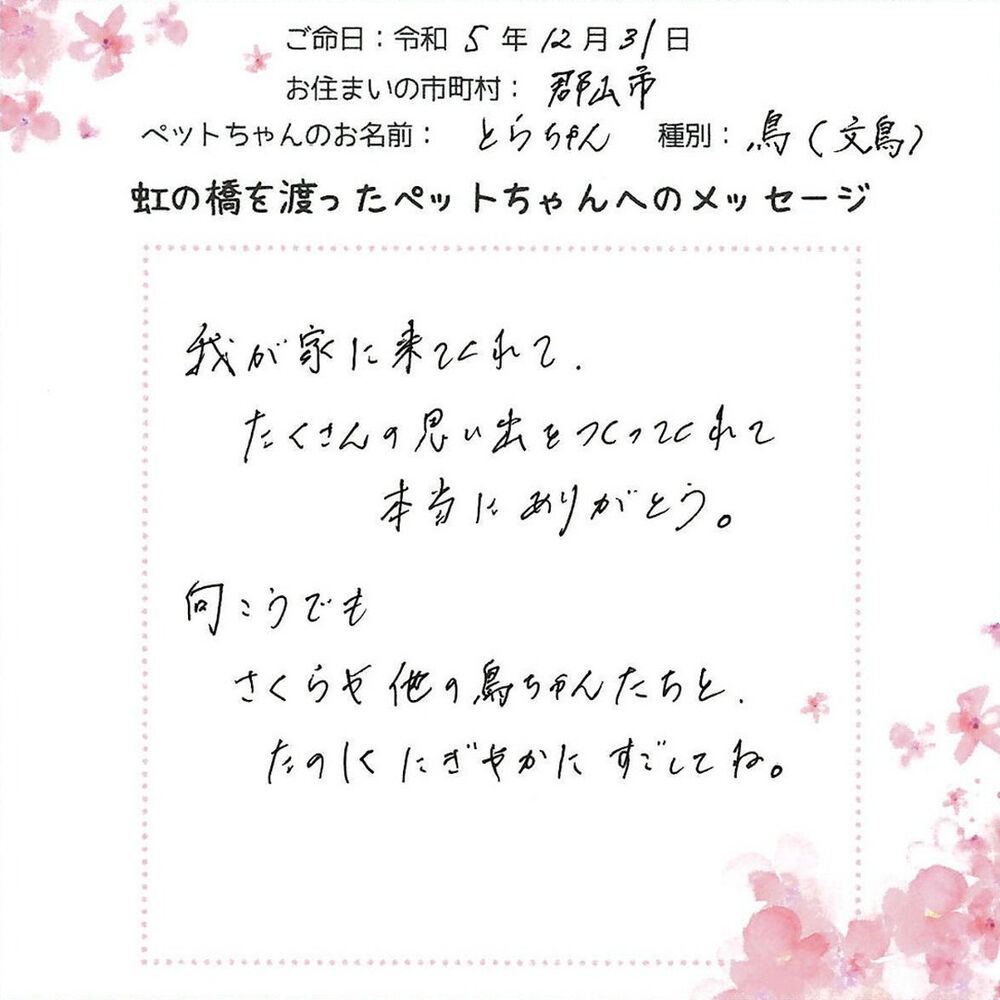 ご命日：令和 5 年 12 月 31 日
お住まいの市町村： 郡山市
ペットちゃんのお名前： とらちゃん 種別：鳥（文鳥）
虹の橋を渡ったペットちゃんへのメッセージ
我が家に来てくれて、
たくさんの思い出をつくってくれて
本当にありがとう。
向こうでも
さくらや他の鳥ちゃんたちと、
たのしくにぎやかにすごしてね。